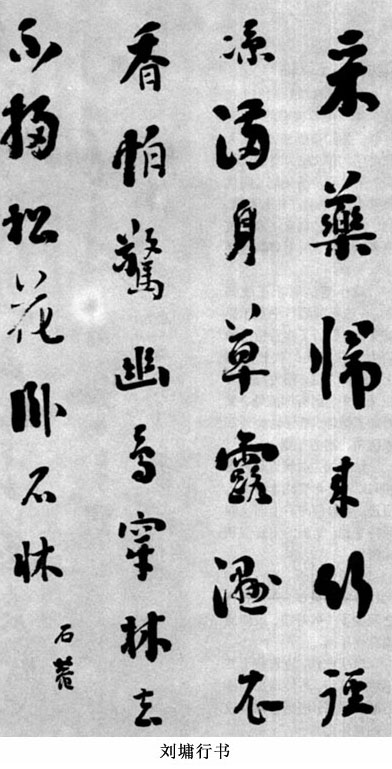 采藥歸来竹徑
凉滿身草露濕衣
香怕驚幽鳥穿林去
不掃松花卧石牀
石菴
刘墉行书